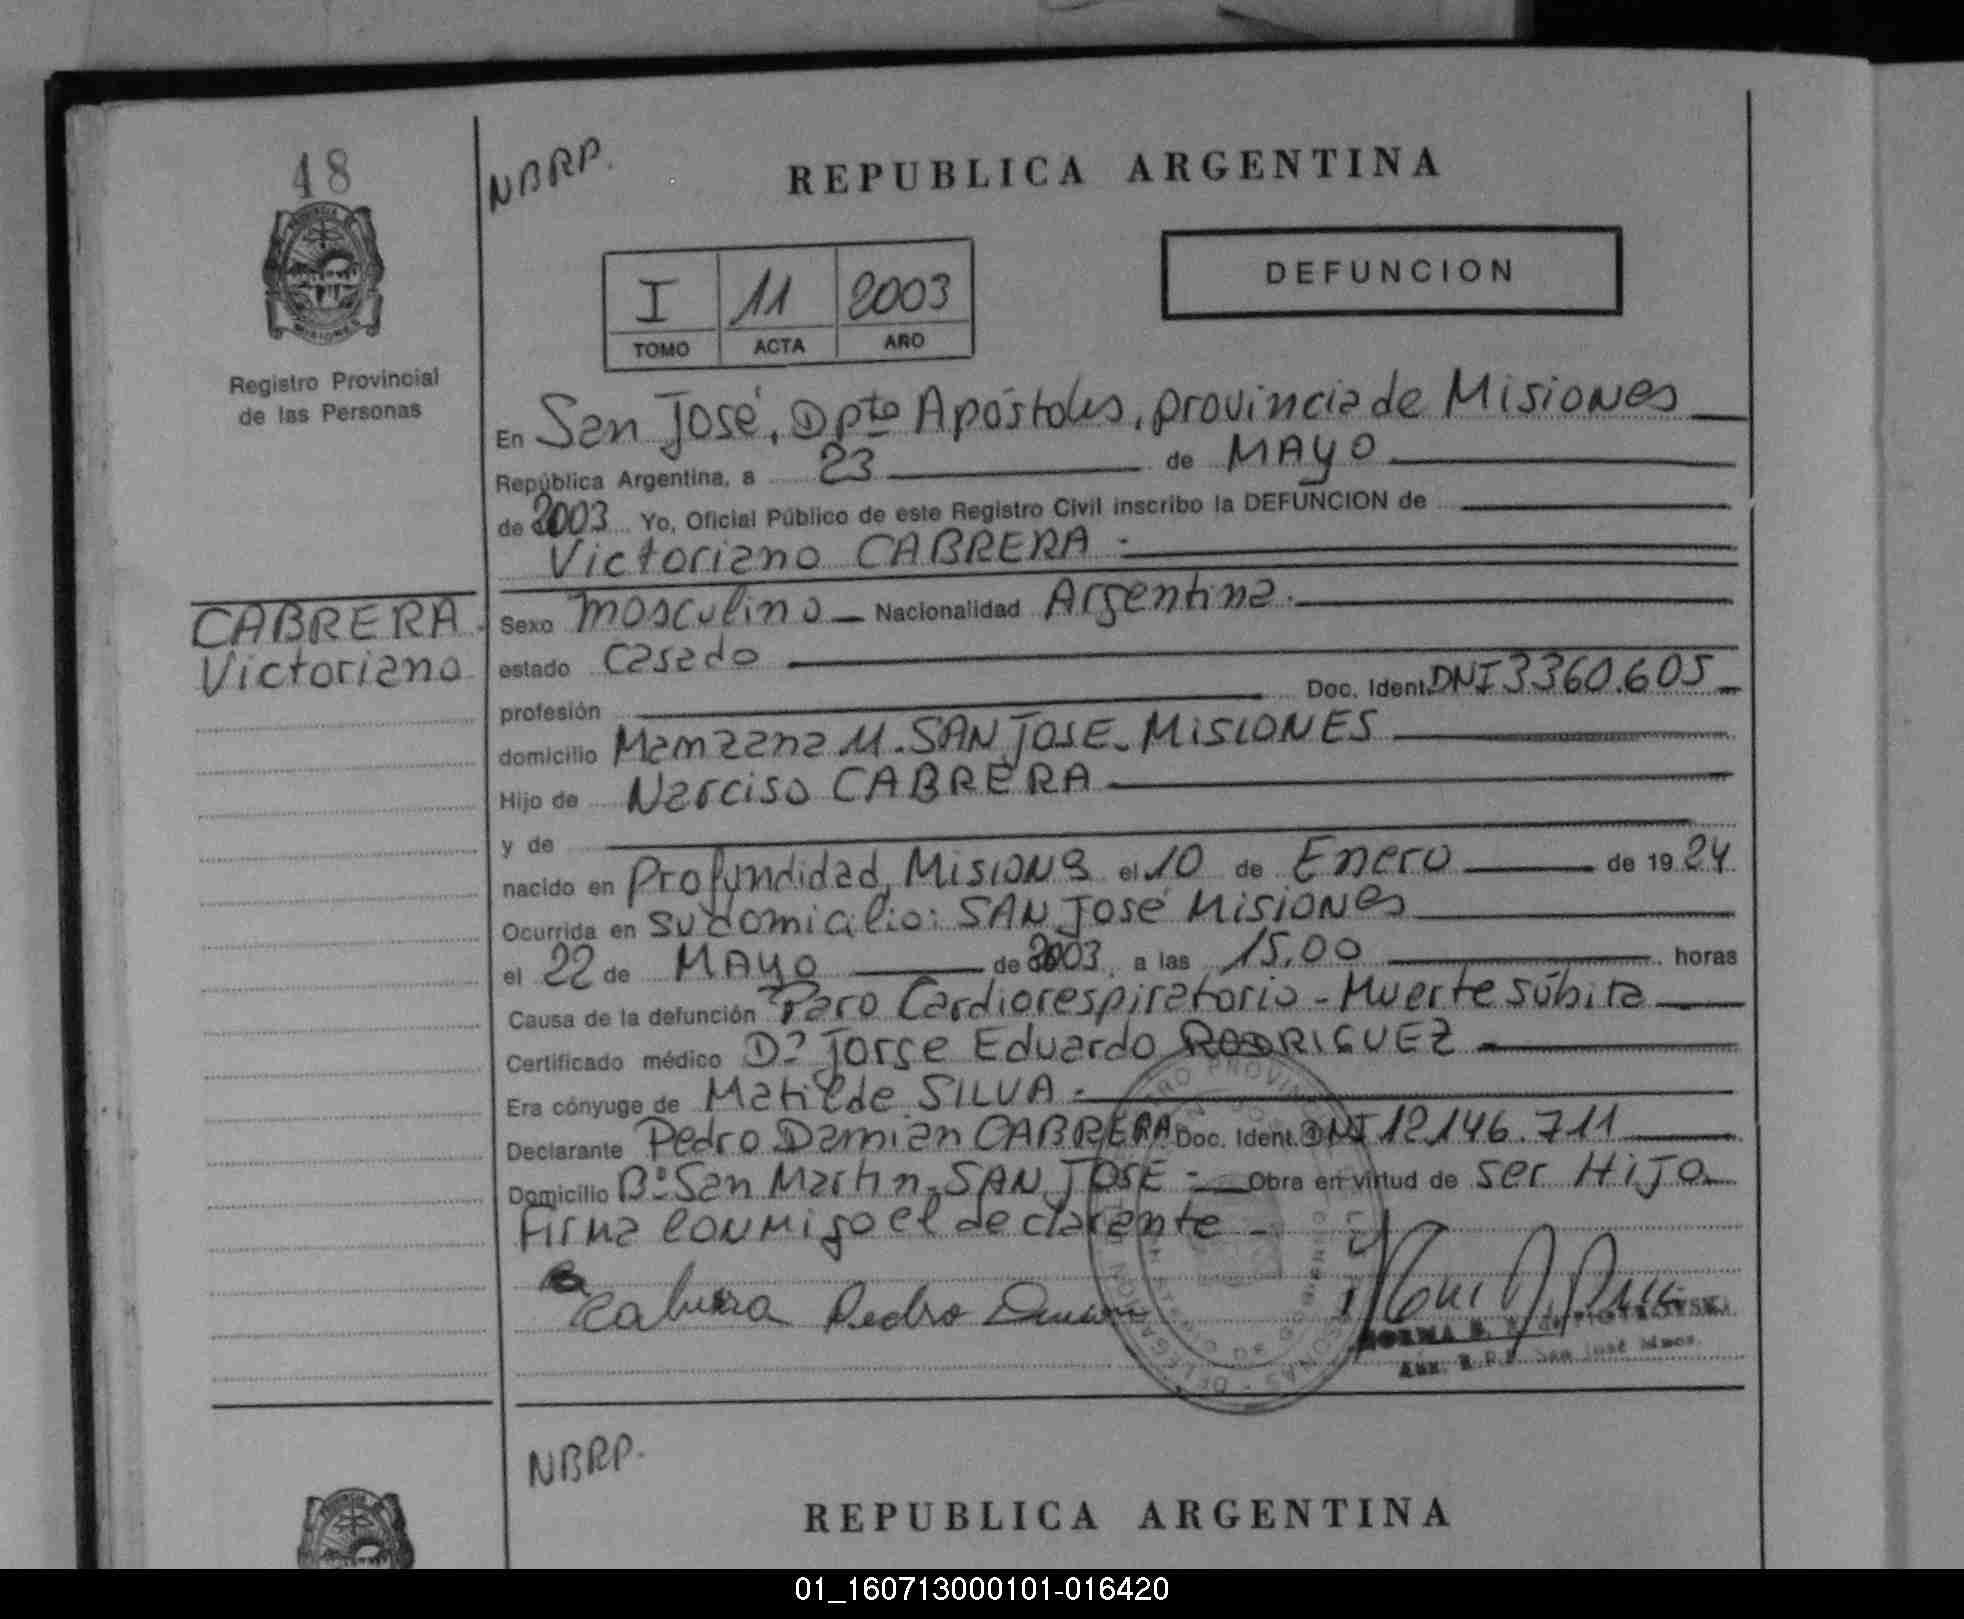 48
NBRP.
REPUBLICA ARGENTINA
DEFUNCION
I 11 2003
TOMO ACTA AÑO
MISIONES
Registro Provincial
de las Personas
En San José, Dpto Apóstoles, provincia de Misiones
República Argentina, a 23 de MAyO
de 2003 Yo, Oficial Público de este Registro Civil inscribo la DEFUNCION de
Victoriano CABRERA.
CABRERA
Victoriano
Sexo masculino Nacionalidad Argentina.
estado casado
profesión Doc. Ident. DNI 3360.605
domicilio Manzana 11. SAN JOSE. MISIONES
Hijo de Narciso CABRERA
y de
nacido en Profundidad, Misiones el 10 de Enero de 19 24
Ocurrida en su domicilio: SAN José Misiones
el 22 de MAyo de 2003 a las 15,00 horas
Causa de la defunción Paro Cardiorespiratorio - Muerte súbita
Certificado médico Dr. Jorge Eduardo RODRIGUEZ
Era cónyuge de Matilde SILVA.
Declarante Pedro Damian CABRERA Doc. Ident. DNI 12146.711
Domicilio Bº San Martin, SAN JOSE - Obra en virtud de ser Hijo
Firma conmigo el declarante -
Cabrera Pedro Damian
NORMA
San José Mnes.
NBRP.
REPUBLICA ARGENTINA
01_160713000101-016420